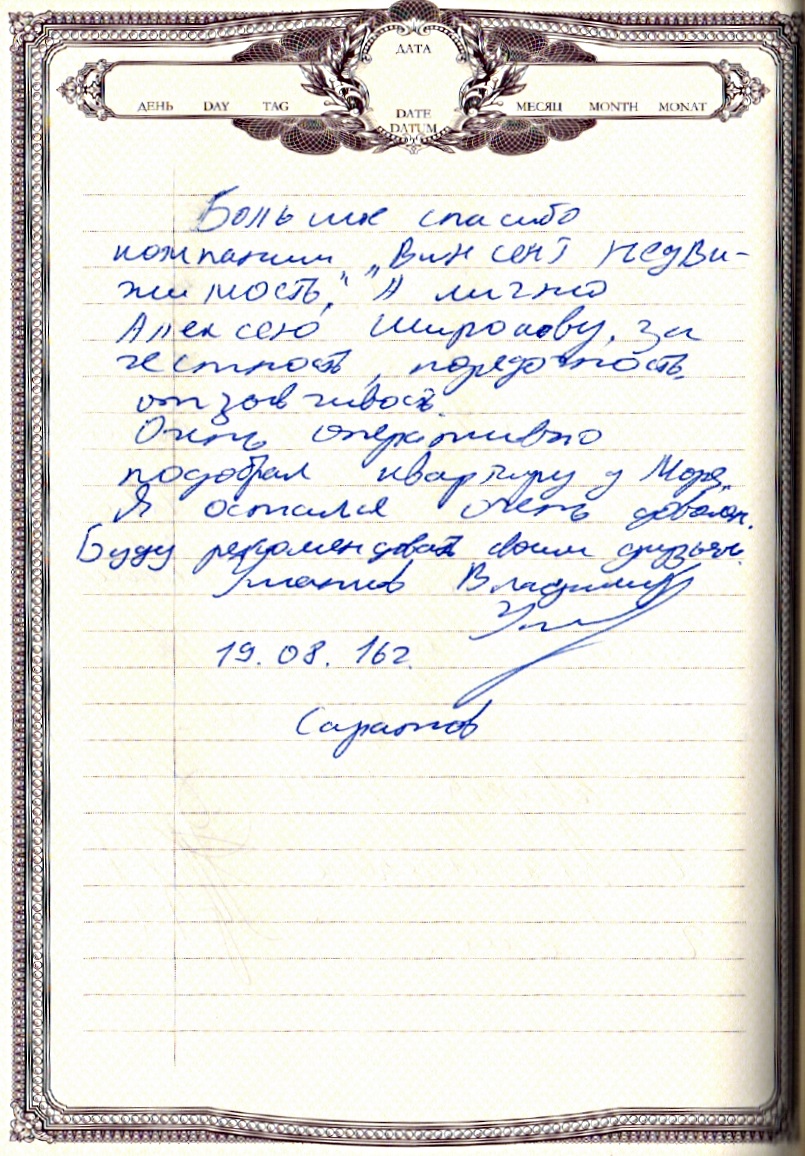 ДАТА
ДЕНЬ DAY TAG
МЕСЯЦ MONTH MONAT
DATE
DATUM
Большое спасибо
компании „Винсент Недви-
жимость," А лично
Алексею Широкову, за
честность, порядочность,
отзывчивость.
Очень оперативно
подобрал квартиру у Моря.
Я остался очень доволен.
Буду рекомендовать своим друзьям.
Владимир
19.08.16г.
Саратов